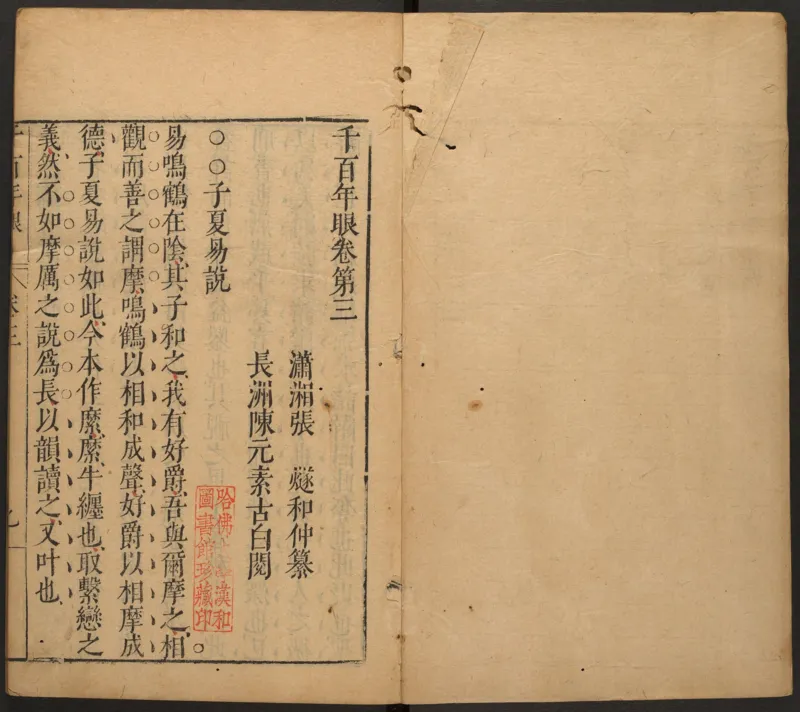 千百年眼卷第三
瀟湘張 燧和仲纂
長洲陳元素古白閱
○○子夏易說
易鳴鶴在陰其子和之我有好爵吾與爾摩之相
觀而善之謂摩鳴鶴以相和成聲好爵以相摩成
德子夏易說如此今本作縻縻牛纏也取繫戀之
義然不如摩厲之說為長以韻讀之又叶也
千百年眼 卷三
哈佛大學漢和
圖書館珍藏印